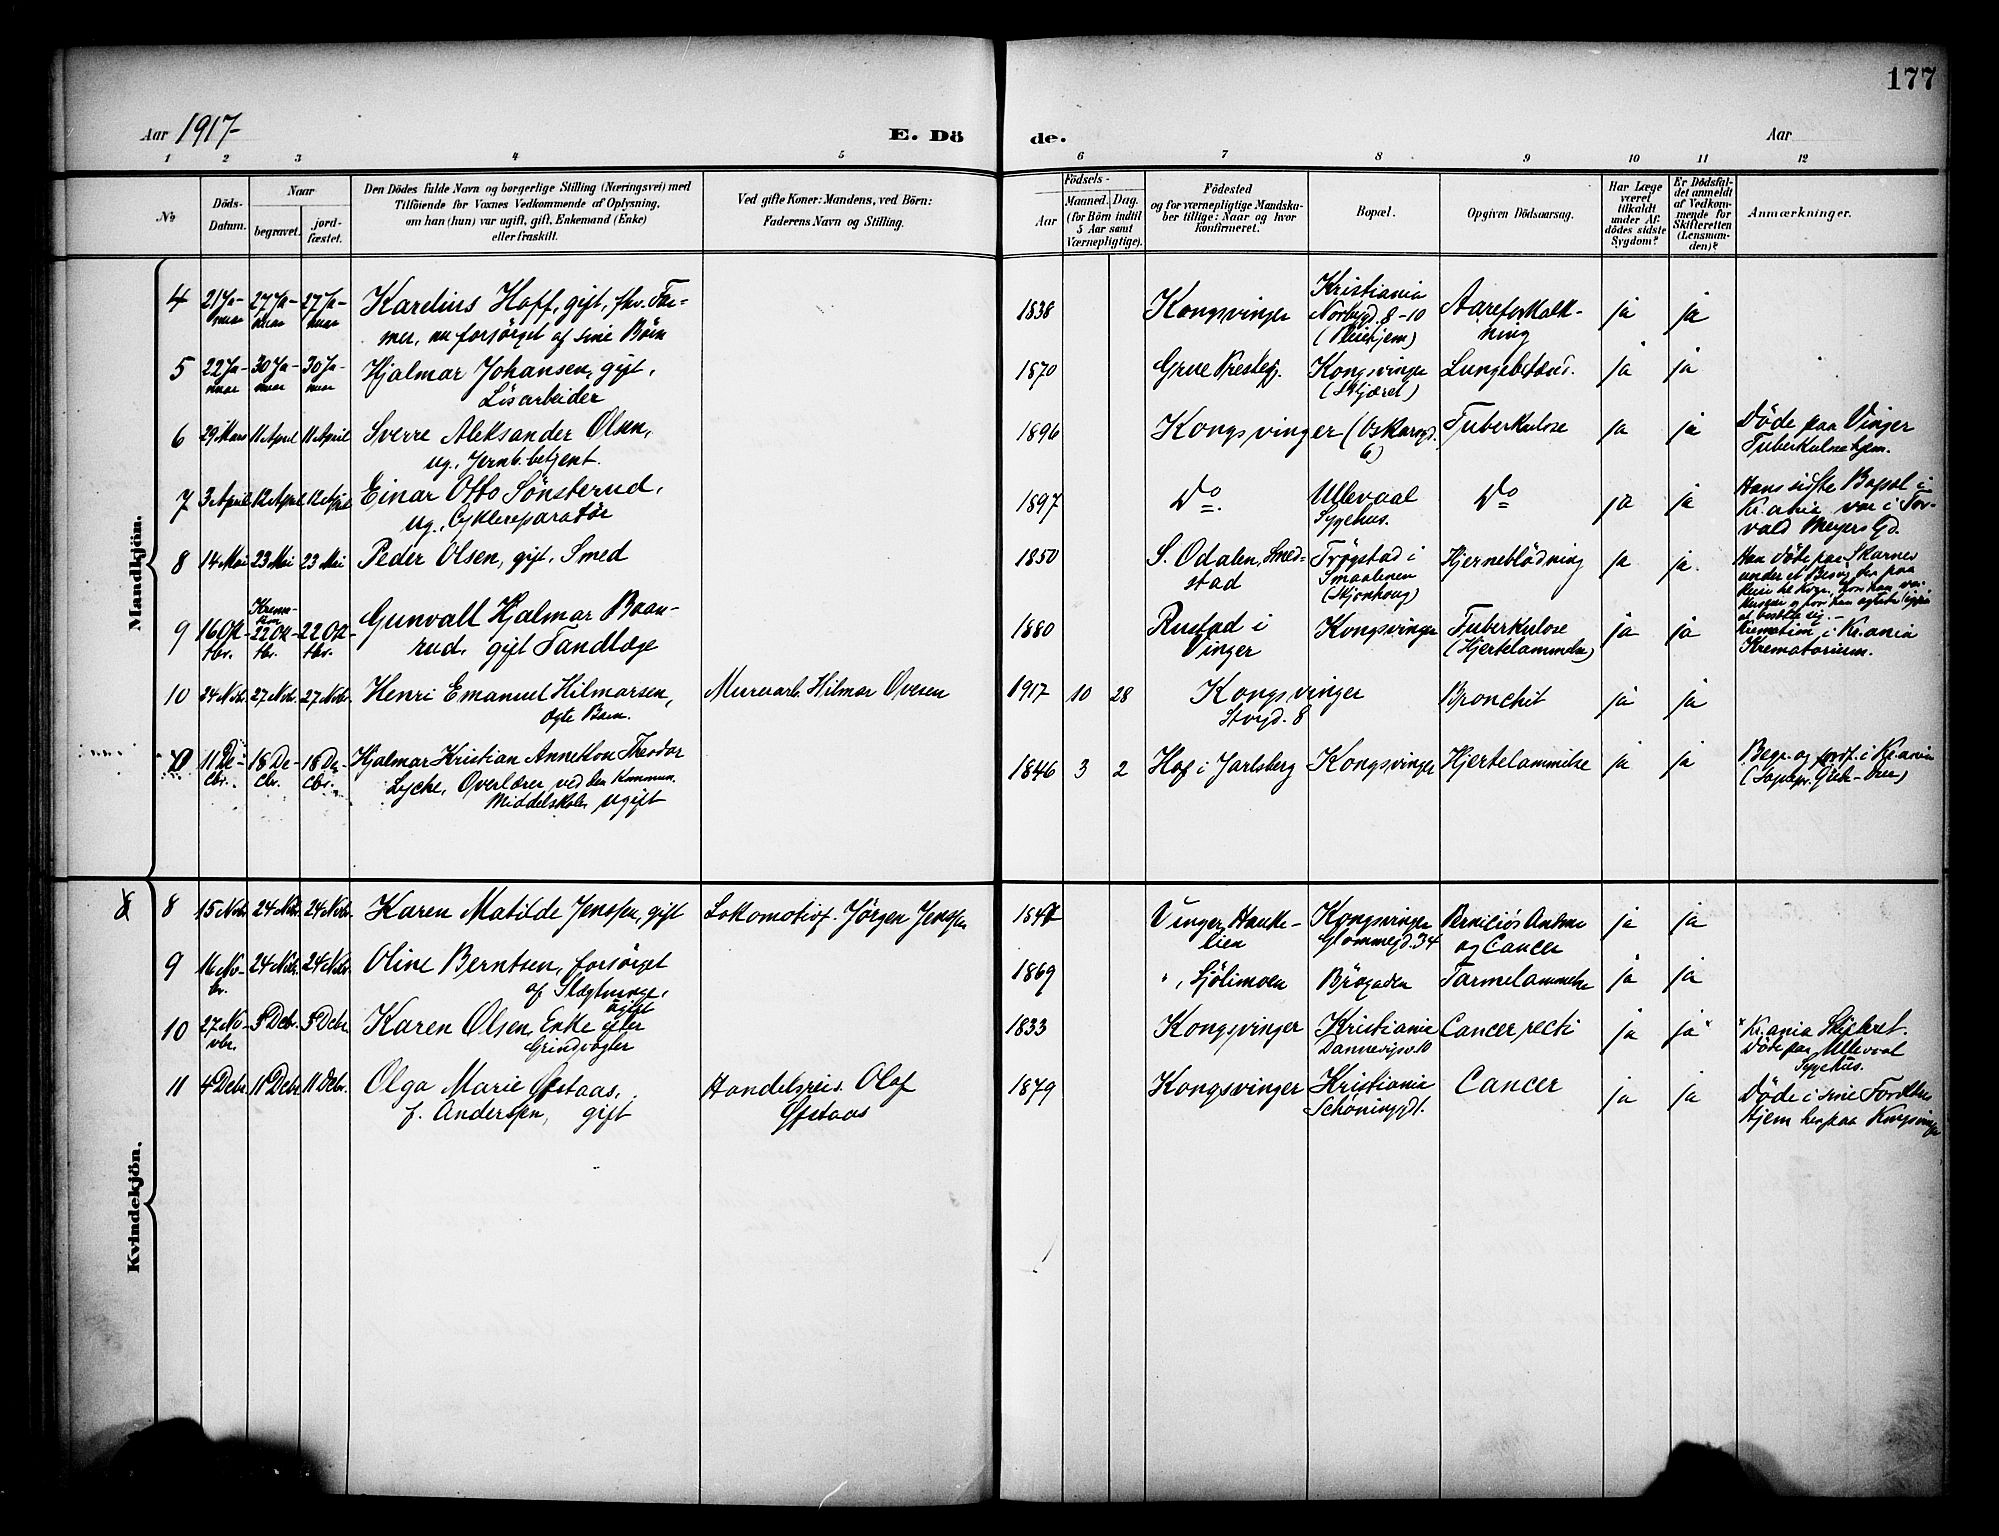 177
Aar 1917
E. Dö
de.
Aar
1 2 3 4 5 6 7 8 9 10 11 12
No
Döds-
Datum.
Naar
begravet.
jord-
fæstet.
Den Dödes fulde Navn og borgerlige Stilling (Næringsvei) med
Tilföiende for Voxnes Vedkommende af Oplysning,
om han (hun) var ugift, gift, Enkemand (Enke)
eller fraskilt.
Ved gifte Koner: Mandens, ved Börn:
Faderens Navn og Stilling.
Födsels-
Aar
Maaned. Dag.
(for Börn indtil
5 Aar samt
Værnepligtige).
Födested
og for værnepligtige Mandska-
ber tillige: Naar og hvor
konfirmeret.
Bopæl.
Opgiven Dödsaarsag.
Har Læge
været
tilkaldt
under Af-
dödes sidste
Sygdom?
Er Dödsfal-
det anmeldt
af Vedkom-
mende for
Skifteretten
(Lensman-
den)?
Anmærkninger.
Mandkjön.
4 21 Ja-
nuar 27 Ja-
nuar 27 Ja-
nuar Karelius Hoff, gift, fhv. Far-
mer, nu forsörget af sine Börn 1838 Kongsvinger Kristiania
Norbygd. 8-10
(Pleiehjem) Aareforkalk-
ning ja ja
5 22 Ja-
nuar 30 Ja-
nuar 30 Ja-
nuar Hjalmar Johansen, gift,
Lösarbeider 1870 Grue Prestegj. Kongsvinger
(Skjæret) Lungebetænd. ja ja
6 29 Mars 11 April 11 April Sverre Aleksander Olsen,
ug. Jernb. betjent. 1896 Kongsvinger (Oskarsgd.
6) Tuberkulose ja ja Döde paa Vinger
Tuberkulosehjem.
7 3 April 12 April 12 April Einar Otto Sönsterud,
ug., Cyklereparatör 1897 Do. Ullevaal
Sygehus. Do ja ja Hans sidste Bopæl i
Kr.ania var i Tor-
vald Meyers Gd.
8 14 Mai 23 Mai 23 Mai Peder Olsen, gift. Smed 1850 S. Odalen, Smed-
stad Trögstad i
Smaalenen
(Skjönhaug) Hjerneblödning ja ja. Han döde paa Skarnes
under et Besög
9 16 Ok-
tbr. Krema-
tion
22 Ok-
tbr. 22 Ok-
tbr. Gunvall Hjalmar Baan-
rud, gift Tandlæge 1880 Rustad i
Vinger Kongsvinger Tuberkulose
(Hjertelammelse) ja ja Kremation i Kr.ania
Krematorium.
10 24 Nvbr. 27 Nvbr. 27 Nvbr. Henri Emanuel Hilmarsen,
ægte Barn. Murerarb. Hilmar Ovesen 1917 10 28 Kongsvinger
Storgd. 8 Bronchit ja ja
11 De-
cbr. 18 De-
cbr. 18 De-
cbr. Hjalmar Kristian Annekon Theodor
Lyche, Overlærer ved den kommun.
Middelskole, ugift 1846 3 2 Hof i Jarlsberg Kongsvinger Hjertelammelse ja ja Begr. og jordf. i Kr.ania
Kvindekjön.
8 8 15 Nvbr. 24 Nvbr. 24 Nvbr. Karen Matilde Jenssen, gift Lokomotivf. Jörgen Jenssen Vinger, Hauke-
lien Kongsvinger
Glommegd. 34 Perniciös Anæmi
og Cancer ja ja
9 16 No-
br. 24 Nvbr. 24 Nvbr. Oline Berntsen, forsörget
af Slægtninge,
ugift 1869 ", Sjölimoen Brögaden Tarmelammelse ja ja
10 27 No-
vbr. 3 Dcbr. 3 Dcbr. Karen Olsen, Enke efter
Grindvogter 1833 Kongsvinger Kristiania
Dannevigsv. 10 Cancer recti ja ja" "Kr.ania Skifteret.
Döde paa Ullevaal
Sygehus.
11 4 Dcbr. 11 Dcbr. 11 Dcbr. Olga Marie Ofstaas,
f. Anderssen, gift Handelsreis. Olaf
Ofstaas 1879 Kongsvinger Kristiania
Schöninggdt. Cancer ja ja Döde i sine Forældres
Hjem her paa Kongsvinger